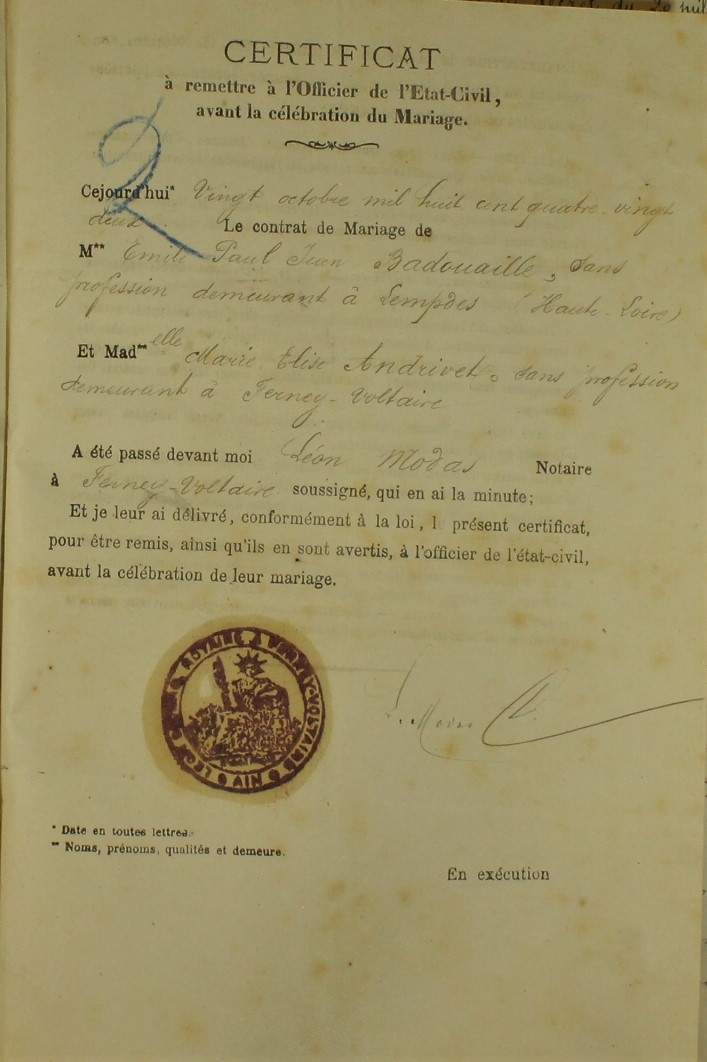 CERTIFICAT
à remettre à l'Officier de l'Etat-Civil,
avant la célébration du Mariage.
2
Cejourd'hui* Vingt octobre mil huit cent quatre-vingt
deux. Le contrat de Mariage de
M** Emile Paul Jean Badouaille, sans
profession demeurant à Lempdes (Haute-Loire)
Et Mad**elle Marie Elise Andrivet, sans profession
demeurant à Ferney-Voltaire
A été passé devant moi Léon Modas Notaire
à Ferney-Voltaire soussigné, qui en ai la minute;
Et je leur ai délivré, conformément à la loi, l présent certificat,
pour être remis, ainsi qu'ils en sont avertis, à l'officier de l'état-civil,
avant la célébration de leur mariage.
A FERNEY-VOLTAIRE AIN
* Date en toutes lettres.
** Noms, prénoms, qualités et demeure.
En exécution